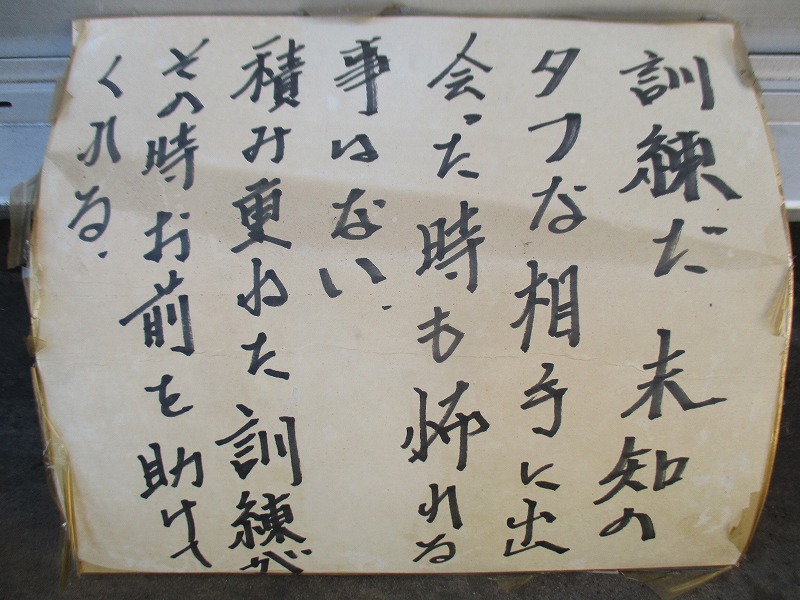 訓練だ 未知の
タフな相手に出
会った時も怖れる
事はない。
積み更ねた訓練が
その時お前を助けて
くれる。